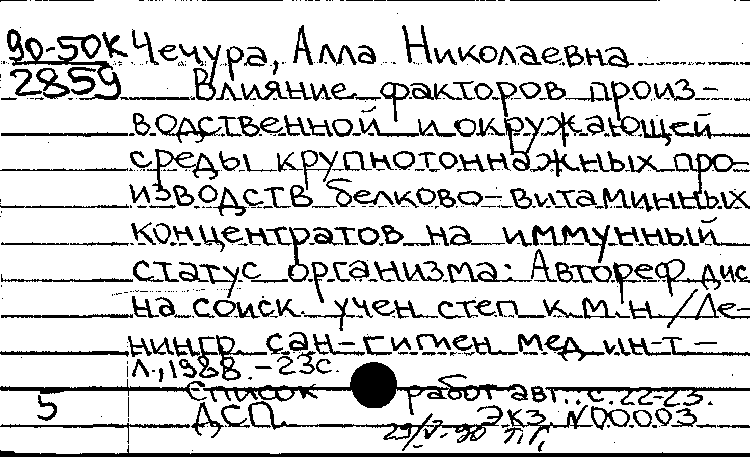 90-50К Чечура, Алла Николаевна
2859 Влияние факторов произ-
водственной и окружающей
среды крупнотоннажных про-
изводств белково-витаминных
концентратов на иммунный
статус организма: Автореф. дис
на соиск. учен степ к.м.н. /Ле-
нингр. сан-гигиен мед ин-т -
Л., 1988. - 23с.
Список работ авт.: с. 22-23.
5 ДСП. Экз. N00003
29/V-90